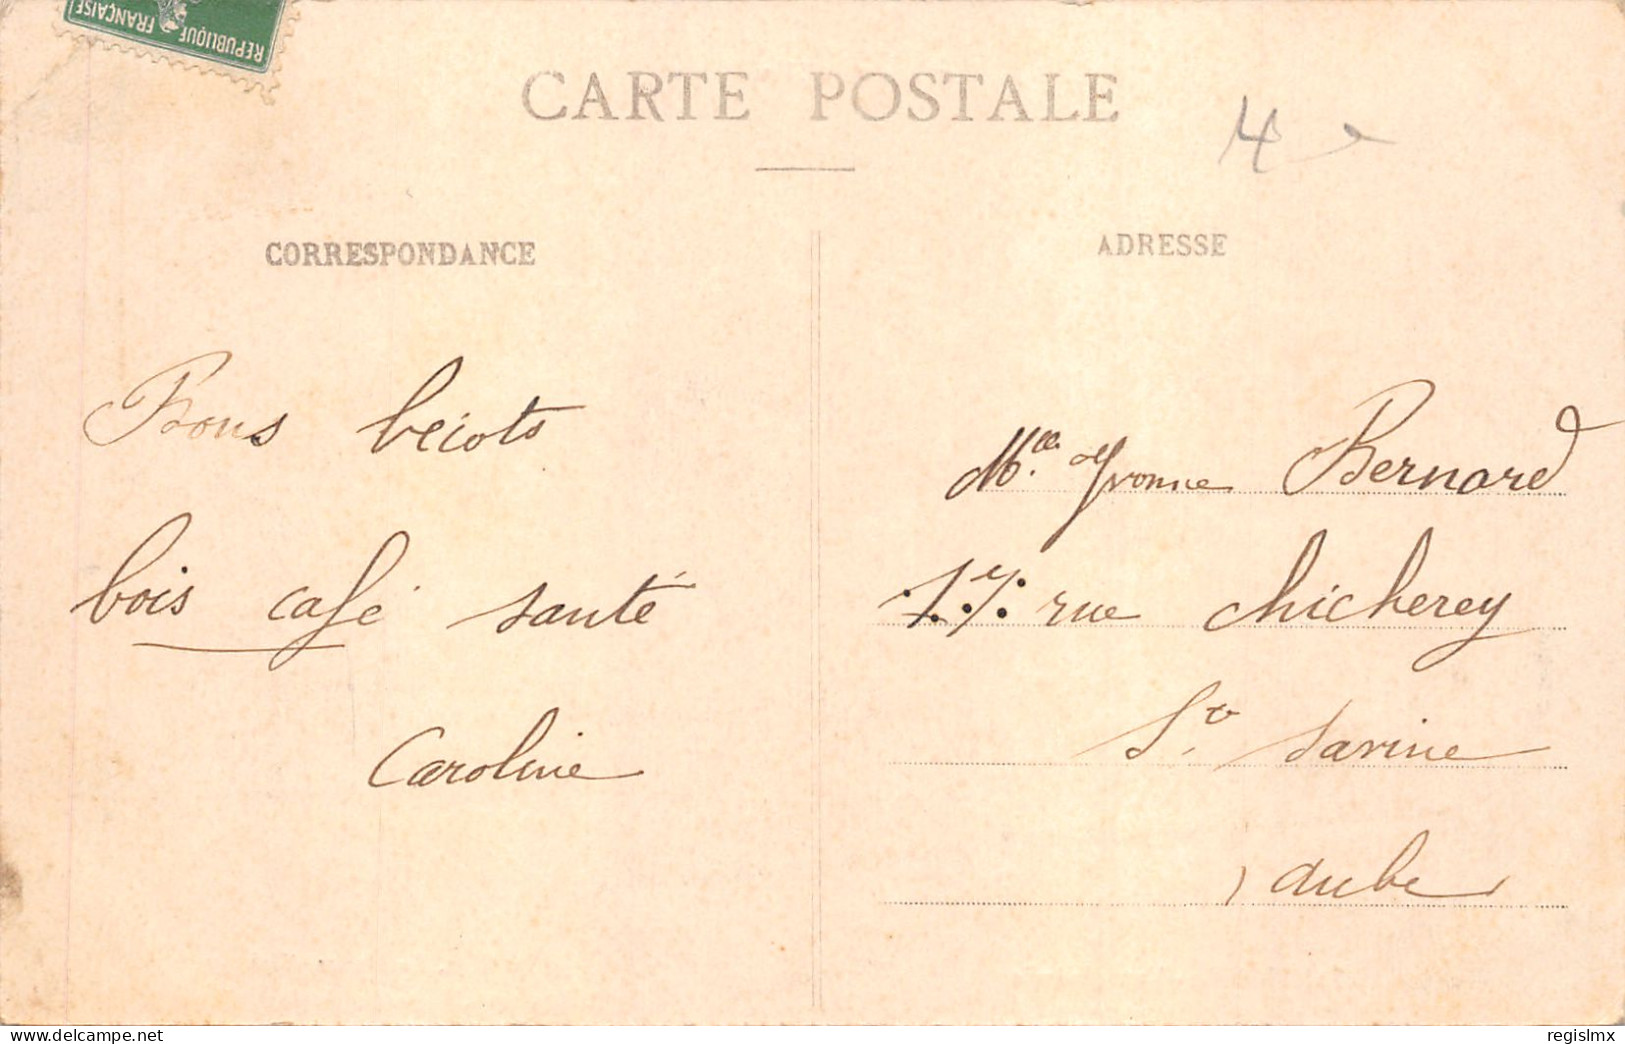 REPUBLIQUE FRANÇAISE
CARTE POSTALE
4
CORRESPONDANCE
Bons bécots
bois café santé
Caroline
ADRESSE
Mlle Yvonne Bernard
17 rue Chicherey
Ste Savine
Aube
delcampe.net
regislmx